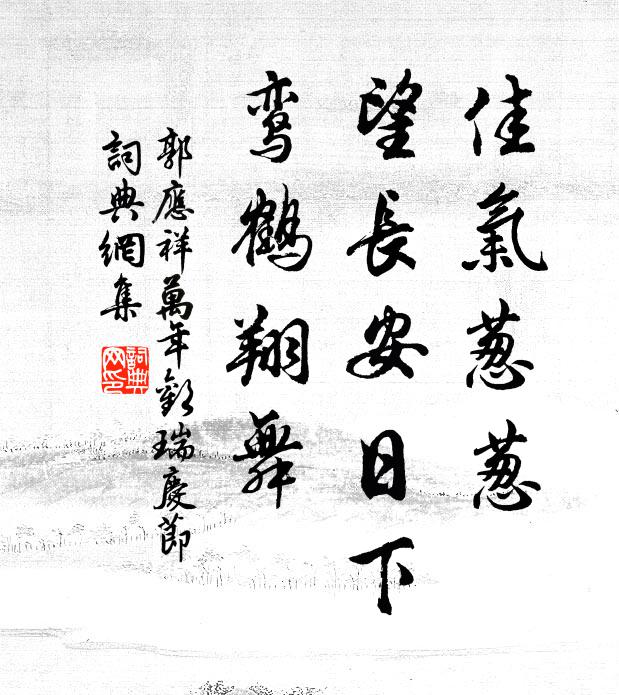 佳氣葱葱
望長安日下
鸾鶴翔舞
郭應祥萬年歡瑞慶節
詞典網集
詞典網印